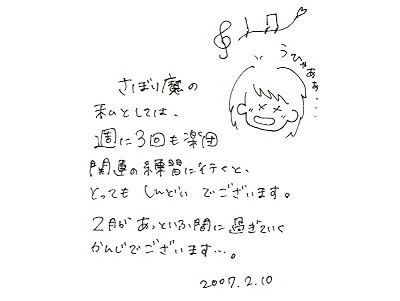 うひゃぁぁ・・・
さぼり魔の
私としては、
1週に3回も楽団
関連の練習に行くと、
とっても しんどい でございます。
2月が あっという間に 過ぎていく
かんじでございます・・・。
2007.2.10